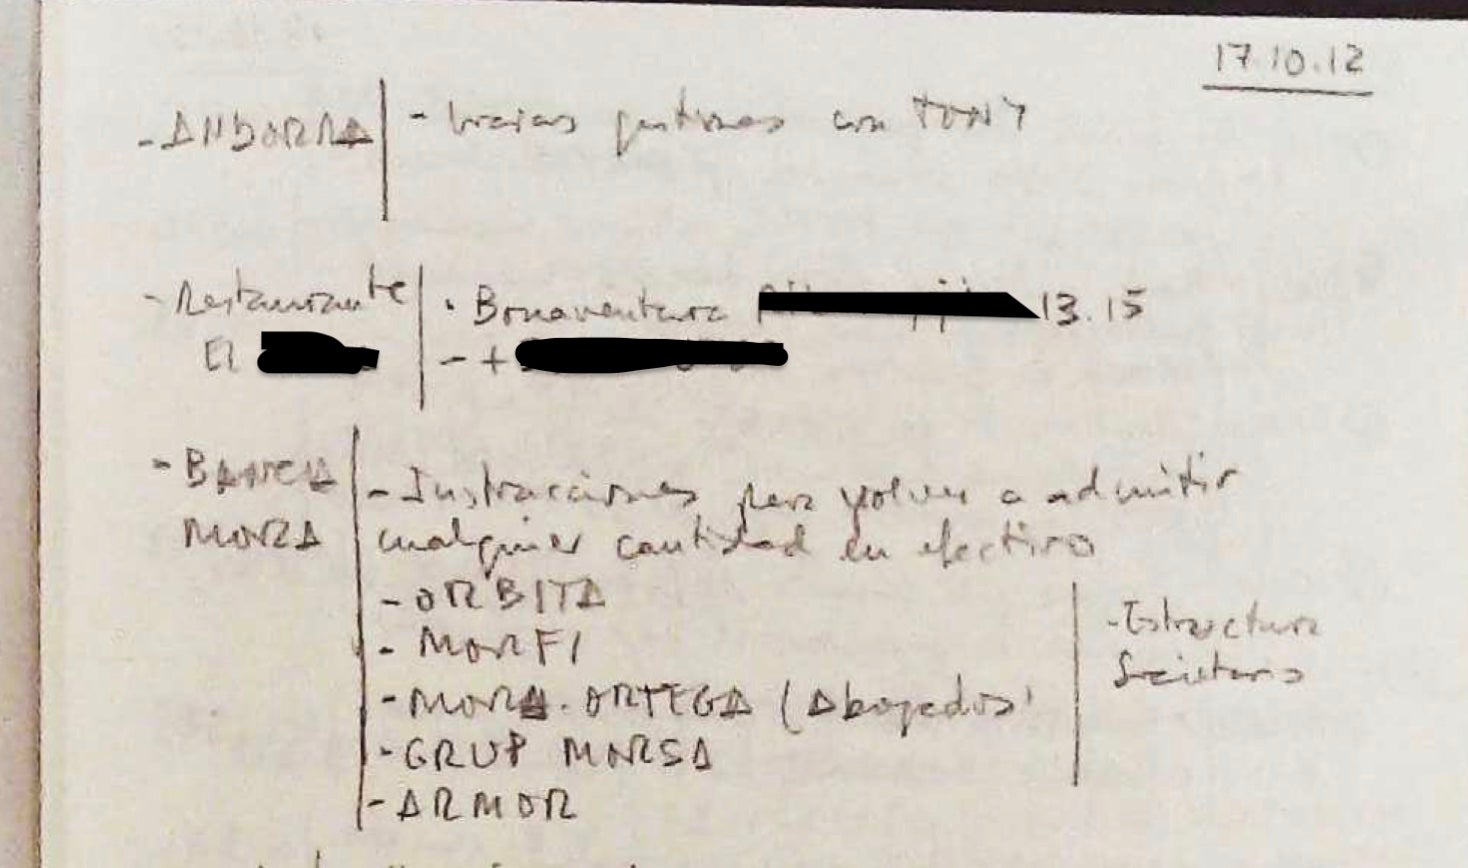 17.10.12
- ANDORRA | - Varias gestiones con TONY
- Restaurante | · Bonaventura 13.15
El | - +
- BANCA | - Instrucciones para volver a admitir
MORA | cualquier cantidad en efectivo
- ORBITA
- MORFI
- Estructura
- MORA-ORTEGA (Abogados)
Societaria
- GRUP MORSA
- ARMOR